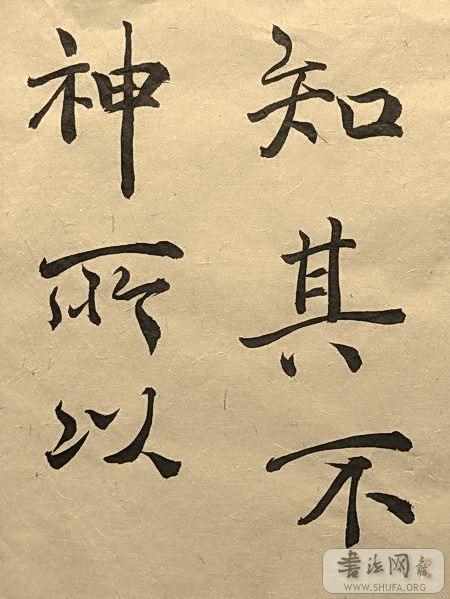 知其不
神所以
书法网
WWW.SHUFA.ORG